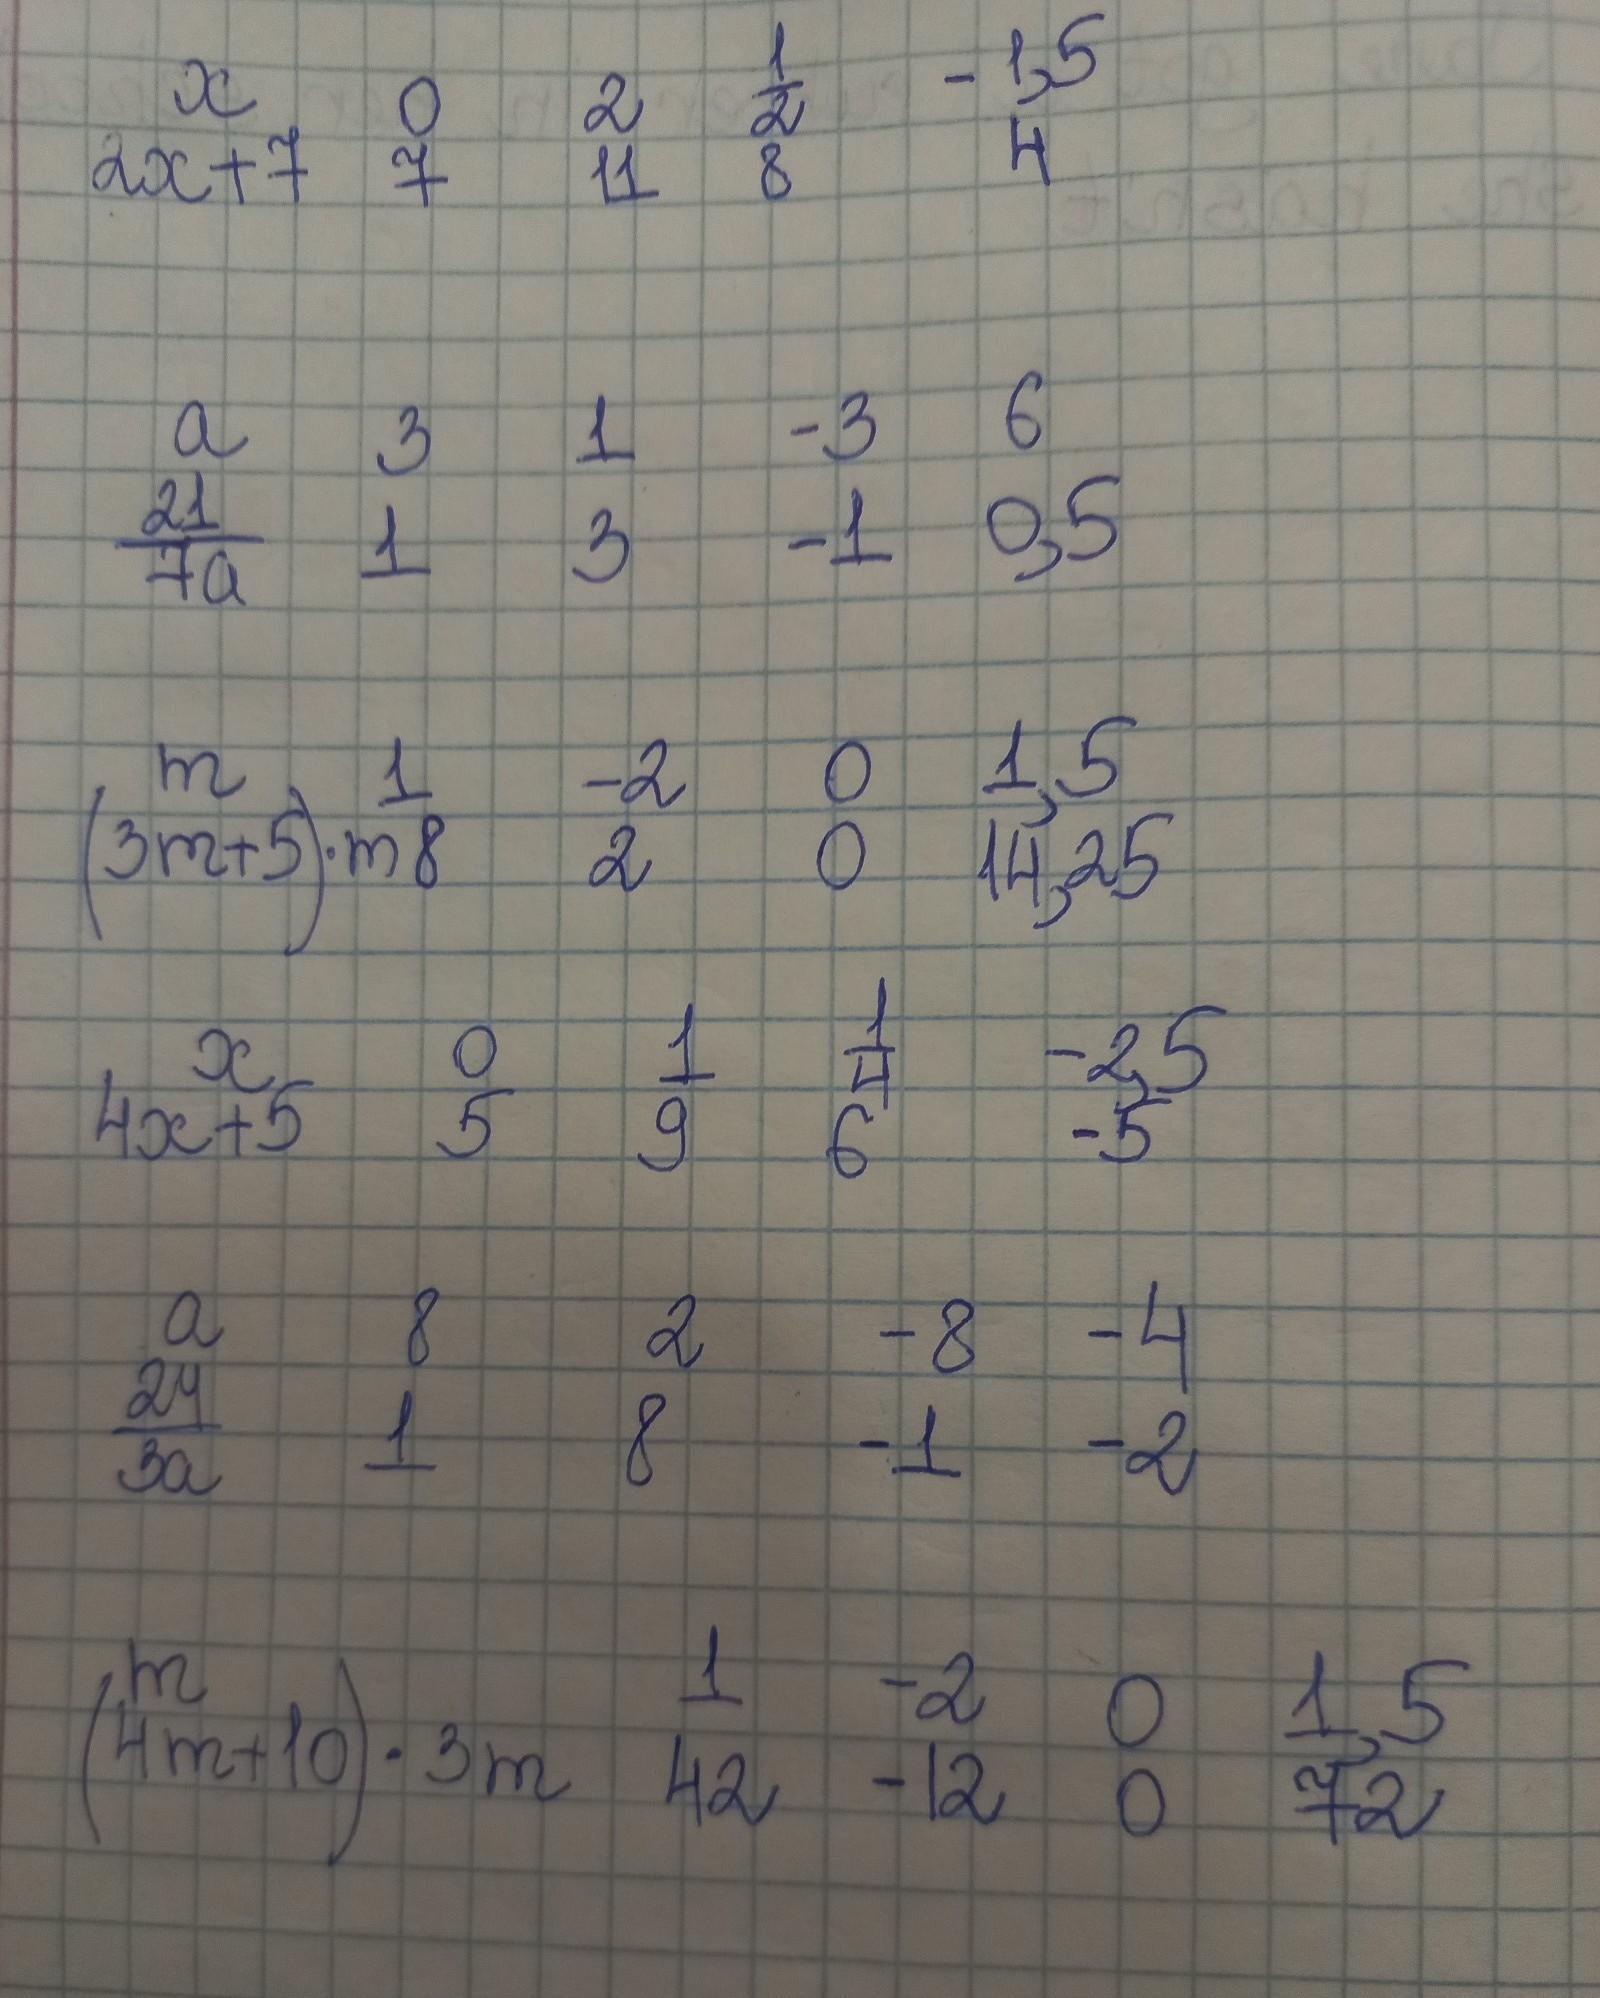 x 0 2 1/2 -1,5
2x+7 7 11 8 4
a 3 1 -3 6
21/7a 1 3 -1 0,5
m 1 -2 0 1,5
(3m+5)·m 8 2 0 14,25
x 0 1 1/4 -2,5
4x+5 5 9 6 -5
a 8 2 -8 -4
24/3a 1 8 -1 -2
m 1 -2 0 1,5
(4m+10)·3m 42 -12 0 72